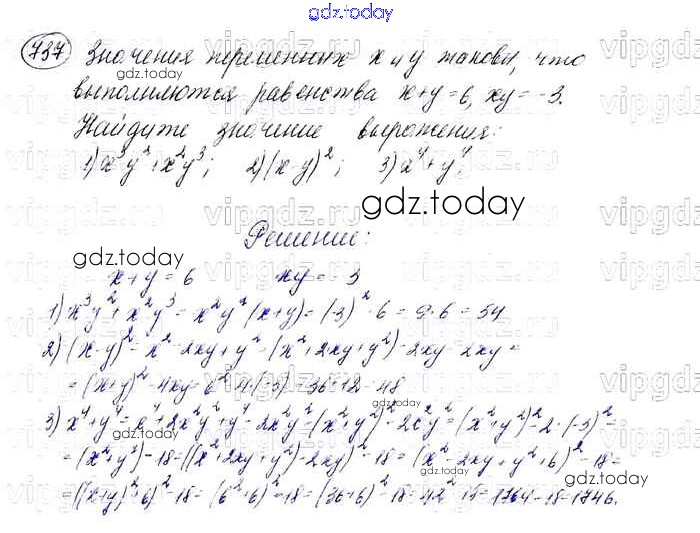 gdz.today
737 Значения переменных x и y таковы, что
выполняются равенства x+y=6, xy=-3.
Найдите значение выражения:
1) x³y²+x²y³; 2) (x-y)²; 3) x⁴+y⁴.
gdz.today
Решение:
x+y=6 xy=-3
1) x³y²+x²y³=x²y²(x+y)=(-3)²·6=9·6=54
2) (x-y)²=x²-2xy+y²=(x²+2xy+y²)-2xy-2xy=
=(x+y)²-4xy=6²-4·(-3)=36+12=48
3) x⁴+y⁴=x⁴+2x²y²+y⁴-2x²y²=(x²+y²)²-2x²y²=(x²+y²)²-2·(-3)²=
=(x²+y²)-18=((x²+2xy+y²)-2xy)²-18=(x²-2xy+y²+6)²-18=
=((x+y)²+6)²-18=(6²+6)²-18=(36+6)²-18=42²-18=1764-18=1746.